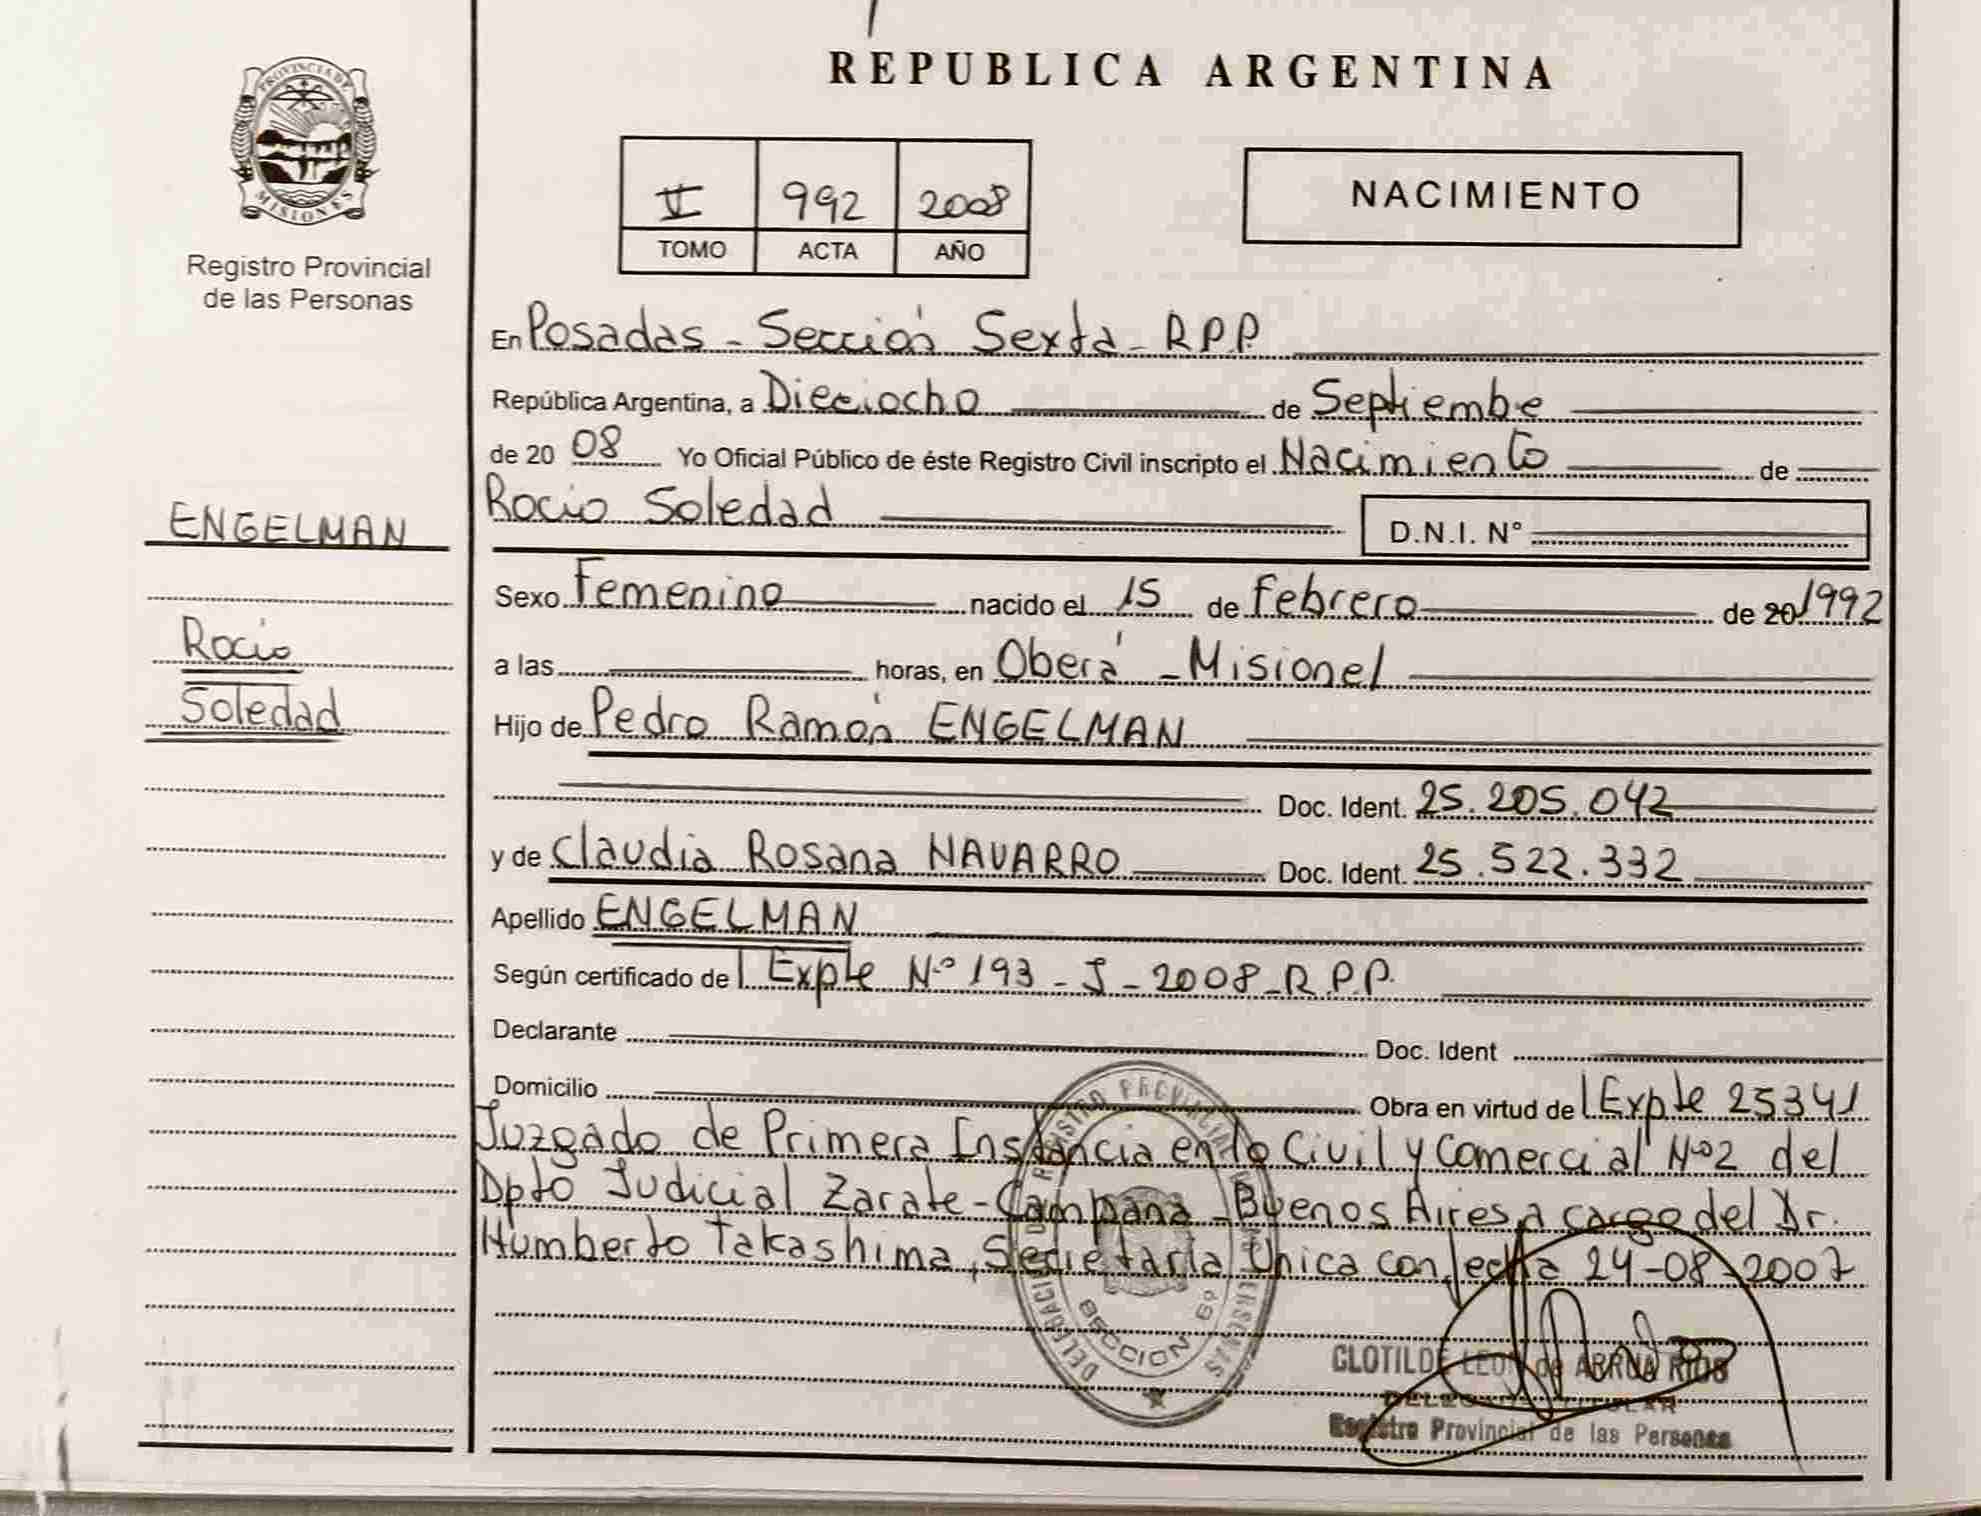 REPUBLICA ARGENTINA
PROVINCIA DE
MISIONES
Registro Provincial
de las Personas
992 2008
TOMO ACTA AÑO
NACIMIENTO
En Posadas - Sección Sexta - R.P.P.
República Argentina, a Dieciocho de Septiembe
de 20 08 Yo Oficial Público de éste Registro Civil inscripto el Nacimiento de
Rocio Soledad D.N.I. N°
ENGELMAN
Rocio
Soledad
Sexo Femenino nacido el 15 de Febrero de 20 1992
a las horas, en Oberá - Misiones
Hijo de Pedro Ramón ENGELMAN
Doc. Ident. 25.205.042
y de Claudia Rosana NAVARRO Doc. Ident. 25.522.332
Apellido ENGELMAN
Según certificado de Expte N° 193 - J - 2008 - R.P.P.
Declarante Doc. Ident
Domicilio Obra en virtud de Expte 25341
Juzgado de Primera Instancia en lo Civil y Comercial N° 2 del
Dpto Judicial Zarate - Campana - Buenos Aires a cargo del Dr.
Humberto Takashima, Secretaria Unica con fecha 24-08-2007
DELEGACION REGISTRO PROVINCIAL PERSONAS
SECCION 6º
CLOTILDE LEON de ARRUA RIOS
DELEGADA TITULAR
Registro Provincial de las Personas